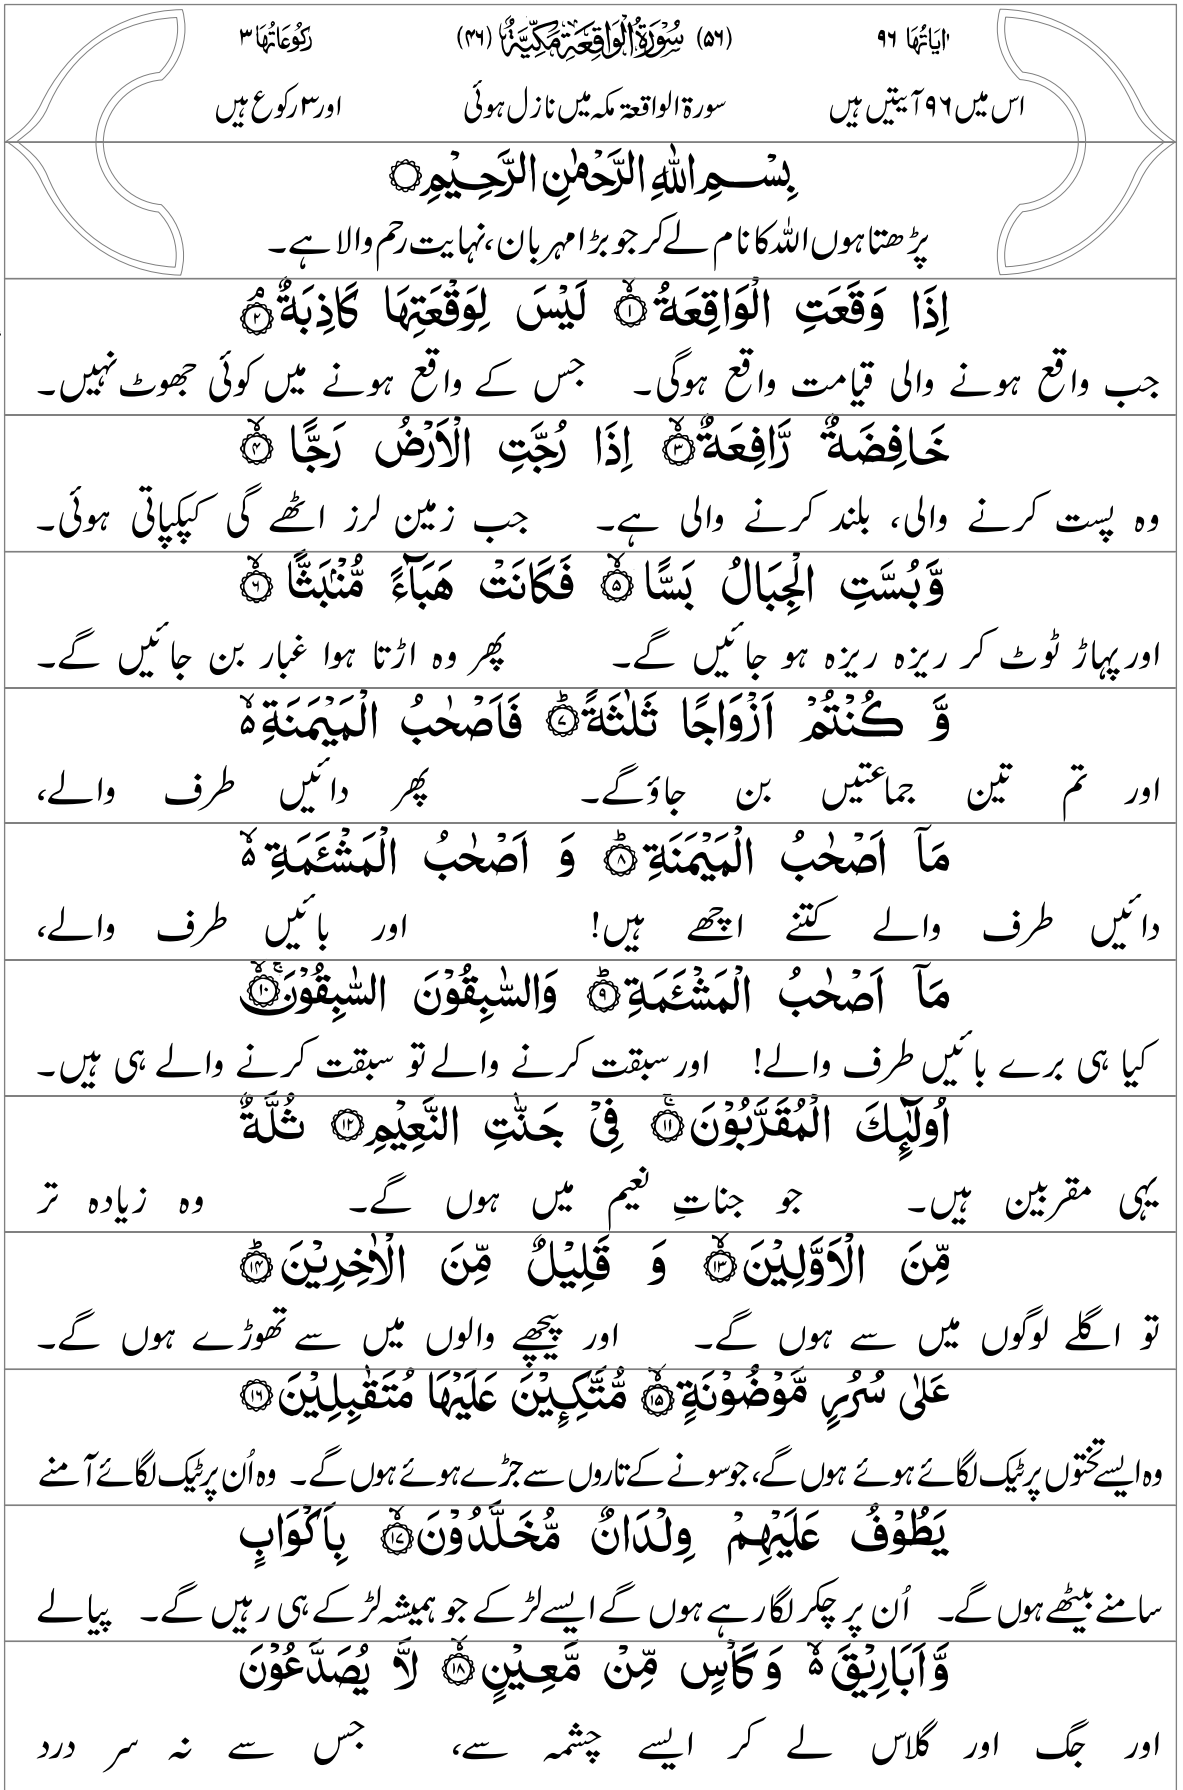 اٰيَاتُهَا ٩٦ (٥٦) سُوْرَةُ الْوَاقِعَةِ مَكِّيَّةٌ (٤٦) رُكُوْعَاتُهَا ٣
اس میں ۹۶ آیتیں ہیں سورۃ الواقعۃ مکہ میں نازل ہوئی اور ۳ رکوع ہیں
بِسْمِ اللهِ الرَّحْمٰنِ الرَّحِيْمِ
پڑھتا ہوں اللہ کا نام لے کر جو بڑا مہربان، نہایت رحم والا ہے۔
اِذَا وَقَعَتِ الْوَاقِعَةُ ۙ﴿١﴾ لَيْسَ لِوَقْعَتِهَا كَاذِبَةٌ ۘ﴿٢﴾
جب واقع ہونے والی قیامت واقع ہوگی۔ جس کے واقع ہونے میں کوئی جھوٹ نہیں۔
خَافِضَةٌ رَّافِعَةٌ ۙ﴿٣﴾ اِذَا رُجَّتِ الْاَرْضُ رَجًّا ۙ﴿٤﴾
وہ پست کرنے والی، بلند کرنے والی ہے۔ جب زمین لرز اٹھے گی کپکپاتی ہوئی۔
وَّبُسَّتِ الْجِبَالُ بَسًّا ۙ﴿٥﴾ فَكَانَتْ هَبَآءً مُّنْۢبَثًّا ۙ﴿٦﴾
اور پہاڑ ٹوٹ کر ریزہ ریزہ ہو جائیں گے۔ پھر وہ اڑتا ہوا غبار بن جائیں گے۔
وَّ كُنْتُمْ اَزْوَاجًا ثَلٰثَةً ؕ﴿٧﴾ فَاَصْحٰبُ الْمَيْمَنَةِ ۙ۬
اور تم تین جماعتیں بن جاؤگے۔ پھر دائیں طرف والے،
مَاۤ اَصْحٰبُ الْمَيْمَنَةِ ؕ﴿٨﴾ وَ اَصْحٰبُ الْمَشْـَٔمَةِ ۙ۬
دائیں طرف والے کتنے اچھے ہیں! اور بائیں طرف والے،
مَاۤ اَصْحٰبُ الْمَشْـَٔمَةِ ؕ﴿٩﴾ وَالسّٰبِقُوْنَ السّٰبِقُوْنَ ۚۙ﴿١٠﴾
کیا ہی برے بائیں طرف والے! اور سبقت کرنے والے تو سبقت کرنے والے ہی ہیں۔
اُولٰٓئِكَ الْمُقَرَّبُوْنَ ۚ﴿١١﴾ فِيْ جَنّٰتِ النَّعِيْمِ ﴿١٢﴾ ثُلَّةٌ
یہی مقربین ہیں۔ جو جناتِ نعیم میں ہوں گے۔ وہ زیادہ تر
مِّنَ الْاَوَّلِيْنَ ۙ﴿١٣﴾ وَ قَلِيْلٌ مِّنَ الْاٰخِرِيْنَ ؕ﴿١٤﴾
تو اگلے لوگوں میں سے ہوں گے۔ اور پیچھے والوں میں سے تھوڑے ہوں گے۔
عَلٰى سُرُرٍ مَّوْضُوْنَةٍ ۙ﴿١٥﴾ مُّتَّكِـِٕيْنَ عَلَيْهَا مُتَقٰبِلِيْنَ ﴿١٦﴾
وہ ایسے تختوں پر ٹیک لگائے ہوئے ہوں گے، جو سونے کے تاروں سے جڑے ہوئے ہوں گے۔ وہ اُن پر ٹیک لگائے آمنے
يَطُوْفُ عَلَيْهِمْ وِلْدَانٌ مُّخَلَّدُوْنَ ۙ﴿١٧﴾ بِاَكْوَابٍ
سامنے بیٹھے ہوں گے۔ اُن پر چکر لگا رہے ہوں گے ایسے لڑکے جو ہمیشہ لڑکے ہی رہیں گے۔ پیالے
وَّاَبَارِيْقَ ۙ۬ وَكَاْسٍ مِّنْ مَّعِيْنٍ ۙ﴿١٨﴾ لَّا يُصَدَّعُوْنَ
اور جگ اور گلاس لے کر ایسے چشمہ سے، جس سے نہ سر درد